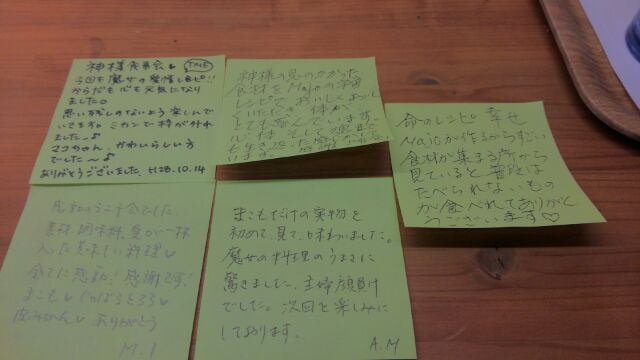 神様発見会♥ TME
今回も魔女の愛情レシピ!!
からだも心も元気になり
ました。
思い残しのないよう楽しんで
いてます。ミカンで枠が外れ
ました〜♪
マコちゃん、かわいらしい方
でした〜♪
ありがとうございました H28.10.14
神様の見つかった
食材をMajoの宇宙
レシピでおいしくよい
いただき 体が
とても喜んでいます。
命のレシピ 幸せ
Majoが作るからすごい
食材が集まる所から
見ていると 普段は
たべられないもの
が食べれてありがと
うございます♡
感動のランチ会でした
素材、調味料、愛が一杯
入った美味しい料理♥
全てに感動!感謝です!
まこも♥ じねんじょ とろろ♥
皮みかん♥ ありがとう
M.I
まこもだけの実物を
初めて、見て、味わいました。
魔女の料理のうまさに
驚きました。主婦顔負け
でした。次回を楽しみに
しております。
A.M